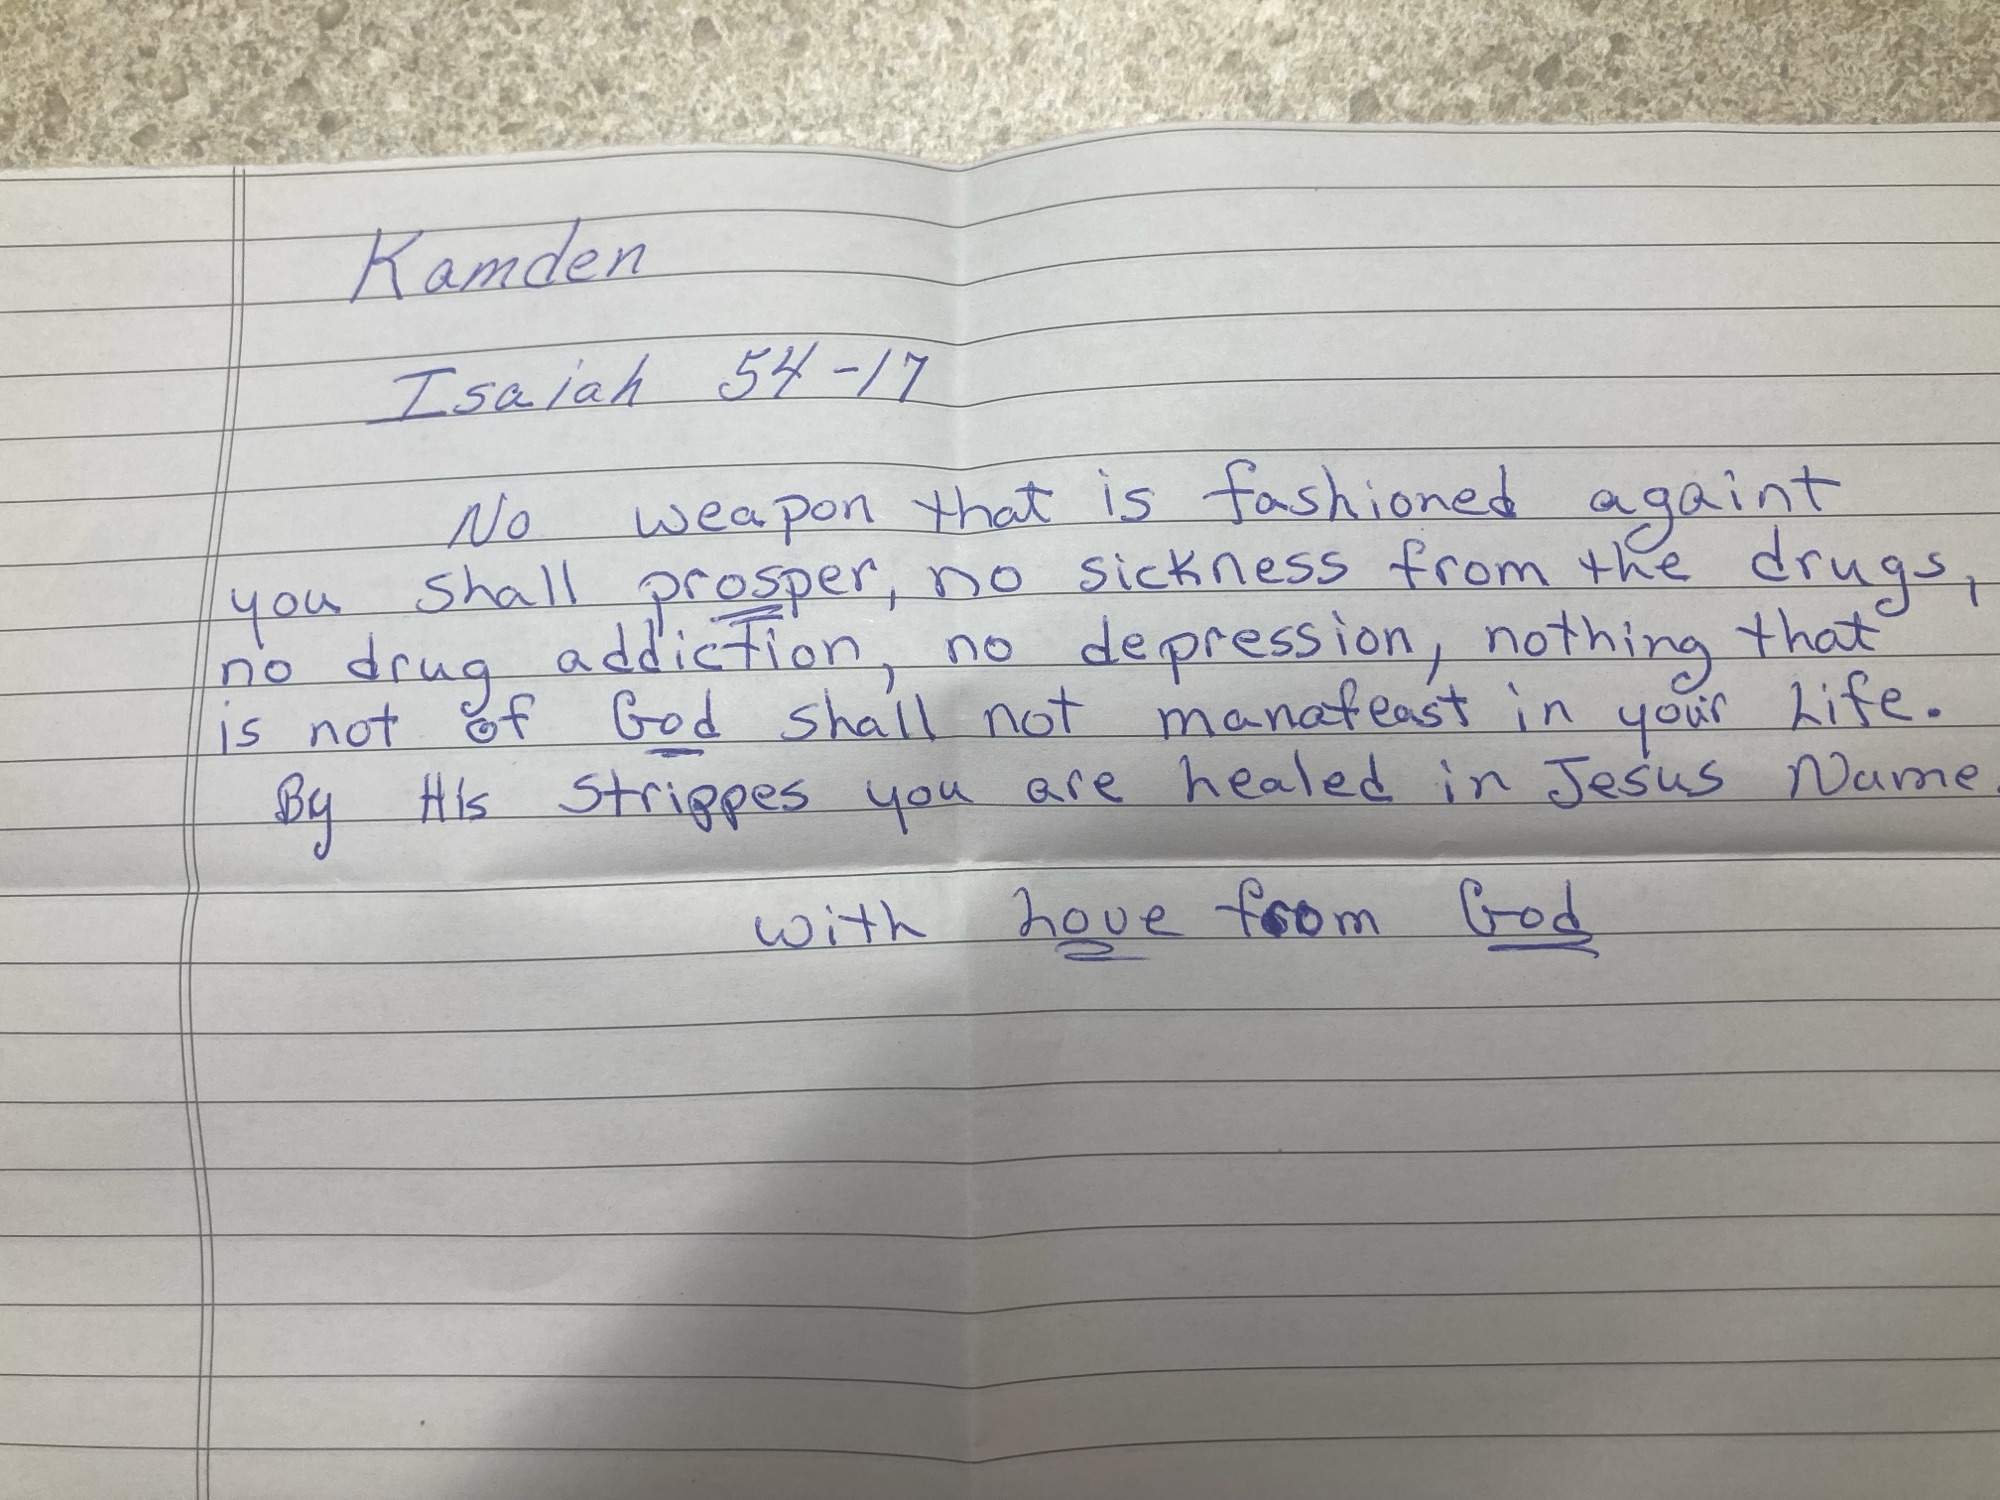 Kamden
Isaiah 54-17
No weapon that is fashioned againt
you shall prosper, no sickness from the drugs,
no drug addiction, no depression, nothing that
is not of God shall not manafeast in your Life.
By His Strippes you are healed in Jesus Name.
with Love from God